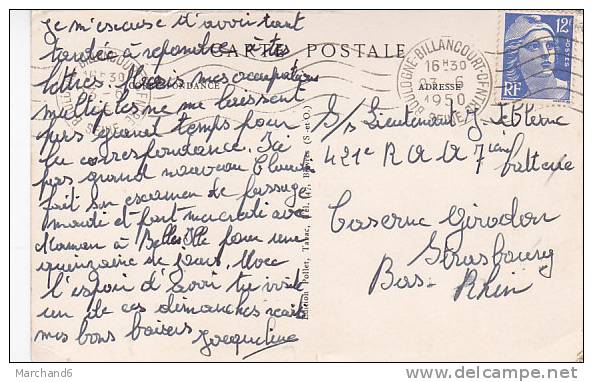 Je m'excuse d'avoir tant
tardée à répondre à tes
CARTE POSTALE
lettres. Mais mes occupations
CORRESPONDANCE
multiples ne me laissent
pas grand temps pour
la correspondance. Ici
pas grand nouveau Claude
fait son examen de passage
mardi et part mercredi avec
Maman à Belle Ile pour une
quinzaine de jours. Avec
l'espoir d'avoir ta visite
un de ces dimanches reçois
mes bons baisers Jacqueline
Pollet, Tabac, Bièvres (S.-et-O.)
BOULOGNE-BILLANCOURT-CENTRE
16H30
23-6
1950
ADRESSE
12F
POSTES
RF
S/s Lieutenant J. Leblerc
421e R A A 7ième
batterie
Caserne Girodon
Strasbourg
Bas-Rhin
Marchand6
http://www.delcampe.net